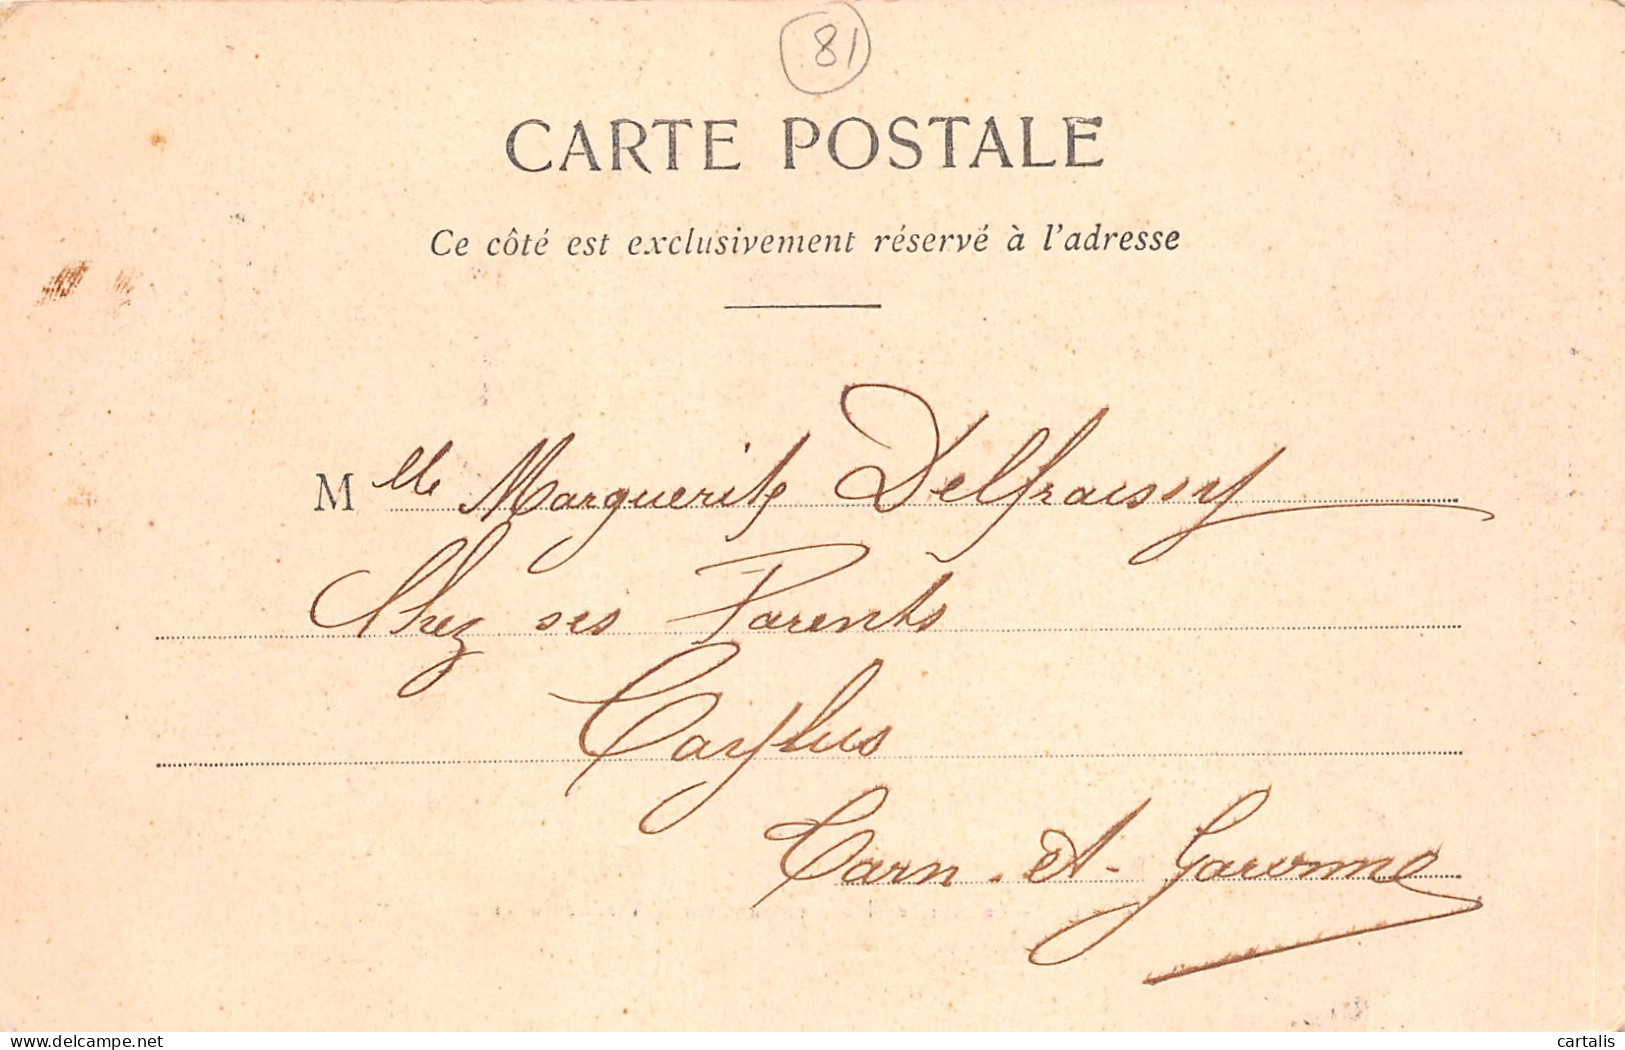 81
CARTE POSTALE
Ce côté est exclusivement réservé à l'adresse
Mlle Marguerite Delfraissy
Chez ses Parents
Caylus
Tarn-et-Garonne
www.delcampe.net
cartalis